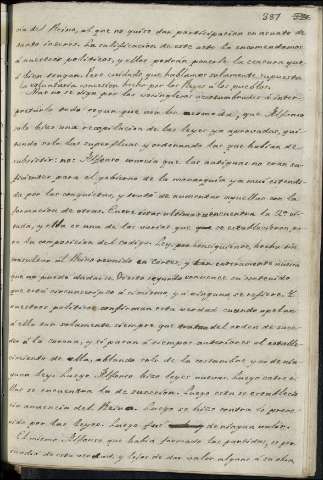 387
cia del Reino, al que no quiso dar participacion en asunto de
tanto interes. La calificacion de este acto la encomendamos
á nuestros politicos, y ellos podrán ponerle la censura que
á bien tengan. Pero cuidado que hablamos solamente, supuesta
la voluntaria concesion hecha por los Reyes á los pueblos.
Aun no se diga por los novinglesos acostumbrados á inter-
pretarlo todo segun que nos es acomoda, que Alfonso
solo hizo una recapilacion de las leyes ya aprovadas, qui-
tando solo las superfluas, y ordenando las que habian de
subsistir: no: Alfonso conocia que las antiguas no eran su-
ficientes para el gobierno de la monarquía ya mui estendi-
da por las conquistas, y trató de aumentar aquellas con la
formacion de otras. Entre estas ultimas se encuentra la 2ª ci-
tada, y ella es una de las varias que se establecieron, pa-
ra la composicion del codigo. Ley, por consiguiente, hecha sin
noticia al Reino reunido en Cortes, y tan enteramente nueva
que no puede dudarse. De esto segundo convence su contenido
que está circunscripto á si mismo, y á ninguna se refiere. Y
nuestros politicos confirman esta verdad cuando apelan
á ella sola solamente siempre que tratan del orden de suce-
der á la corona, y si pasan á tiempos anteriores al estable-
cimiento de ella, hablando solo de la costumbre, y no de nin-
guna ley. Luego Alfonso hizo leyes nuevas. Luego entre e-
llas se encuentra la de sucesion. Luego esta se estableció
sin anuencia del Reino. Luego se hizo contra lo preve-
nido por las leyes. Luego fué de ningun valor.
El mismo Alfonso que habia formado las partidas, se per-
suadia de esta verdad, y lejos de dar valor alguno á su obra